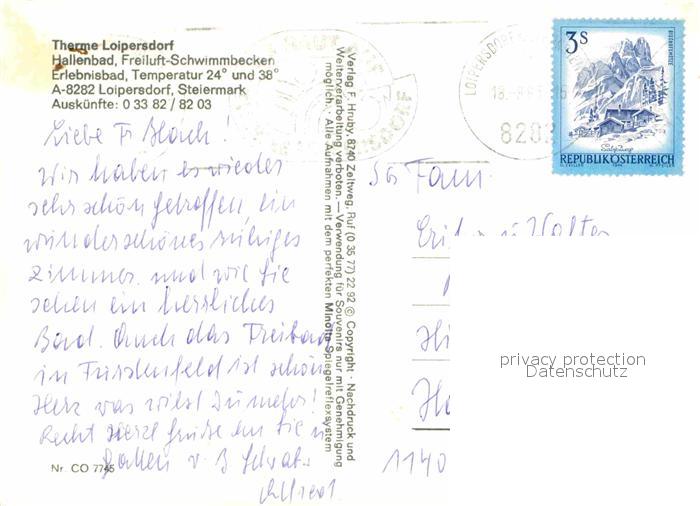 Therme Loipersdorf
Hallenbad, Freiluft-Schwimmbecken
Erlebnisbad, Temperatur 24° und 38°
A-8282 Loipersdorf, Steiermark
Auskünfte: 0 33 82 / 82 03
Liebe Fr
Wir haben es wieder
sehr schön getroffen, ein
wunderschönes ruhiges
Zimmer und wie Sie
sehen ein herrliches
Bad. Auch das Freibad
in Fürstenfeld ist schön
Herz was willst Du mehr!
Recht herzl Grüße an Sie u
Gatten v.
Alfred.
Nr. CO 7745
Verlag F. Hruby, 8740 Zeltweg, Ruf (0 35 77) 22 92 © Copyright - Nachdruck und
Weiterverarbeitung verboten. — Verwendung für Souvenirs nur mit Genehmigung
möglich. - Alle Aufnahmen mit dem perfekten Minolta-Spiegelreflexsystem
LOIPERSDORF
8282
3S
BISCHOFSMÜTZE
Salzburg
REPUBLIK ÖSTERREICH
Fam.
1140
privacy protection
Datenschutz